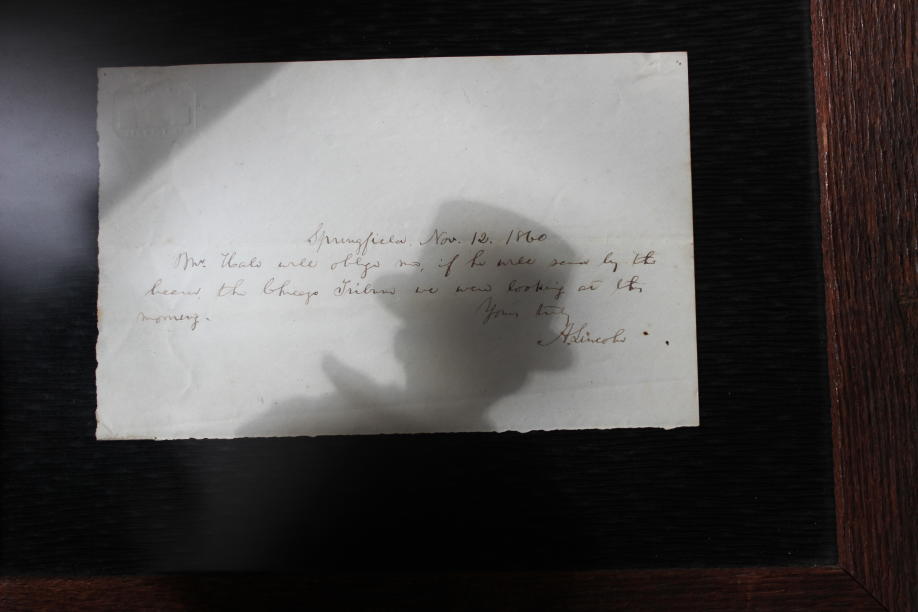 Springfield, Nov. 12. 1860
Mr. Hale will oblige me, if he will send by the
bearer, the Chicago Tribune we were looking at this
morning.
Yours truly
A. Lincoln